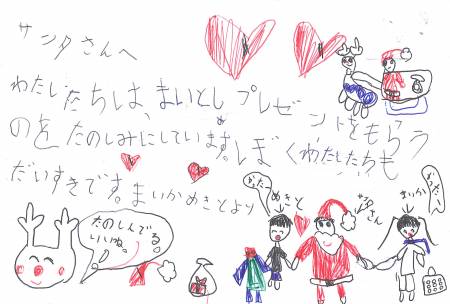 サンタさんへ
わたしたちは、まいとし プレゼントをもらう
のを たのしみにしています。ぼくわたしたちも
だいすきです。まいかめきとより
たのしんでる。
いいね。
めきと
サンタさん
まいか